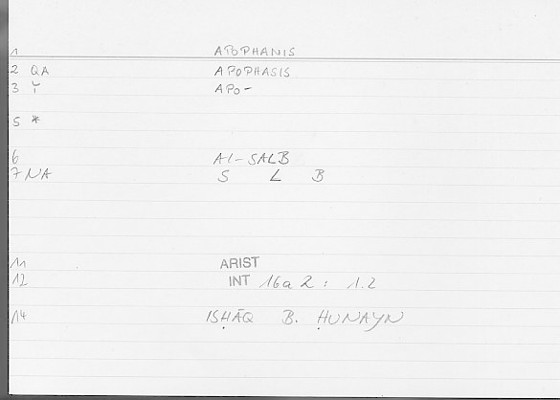 1 APOPHANIS
2 QA APOPHASIS
3 APO-
5 *
6 Al-SALB
7 NA S L B
11 ARIST
12 INT 16a 2 : 1.2
14 ISḤĀQ B. ḤUNAYN